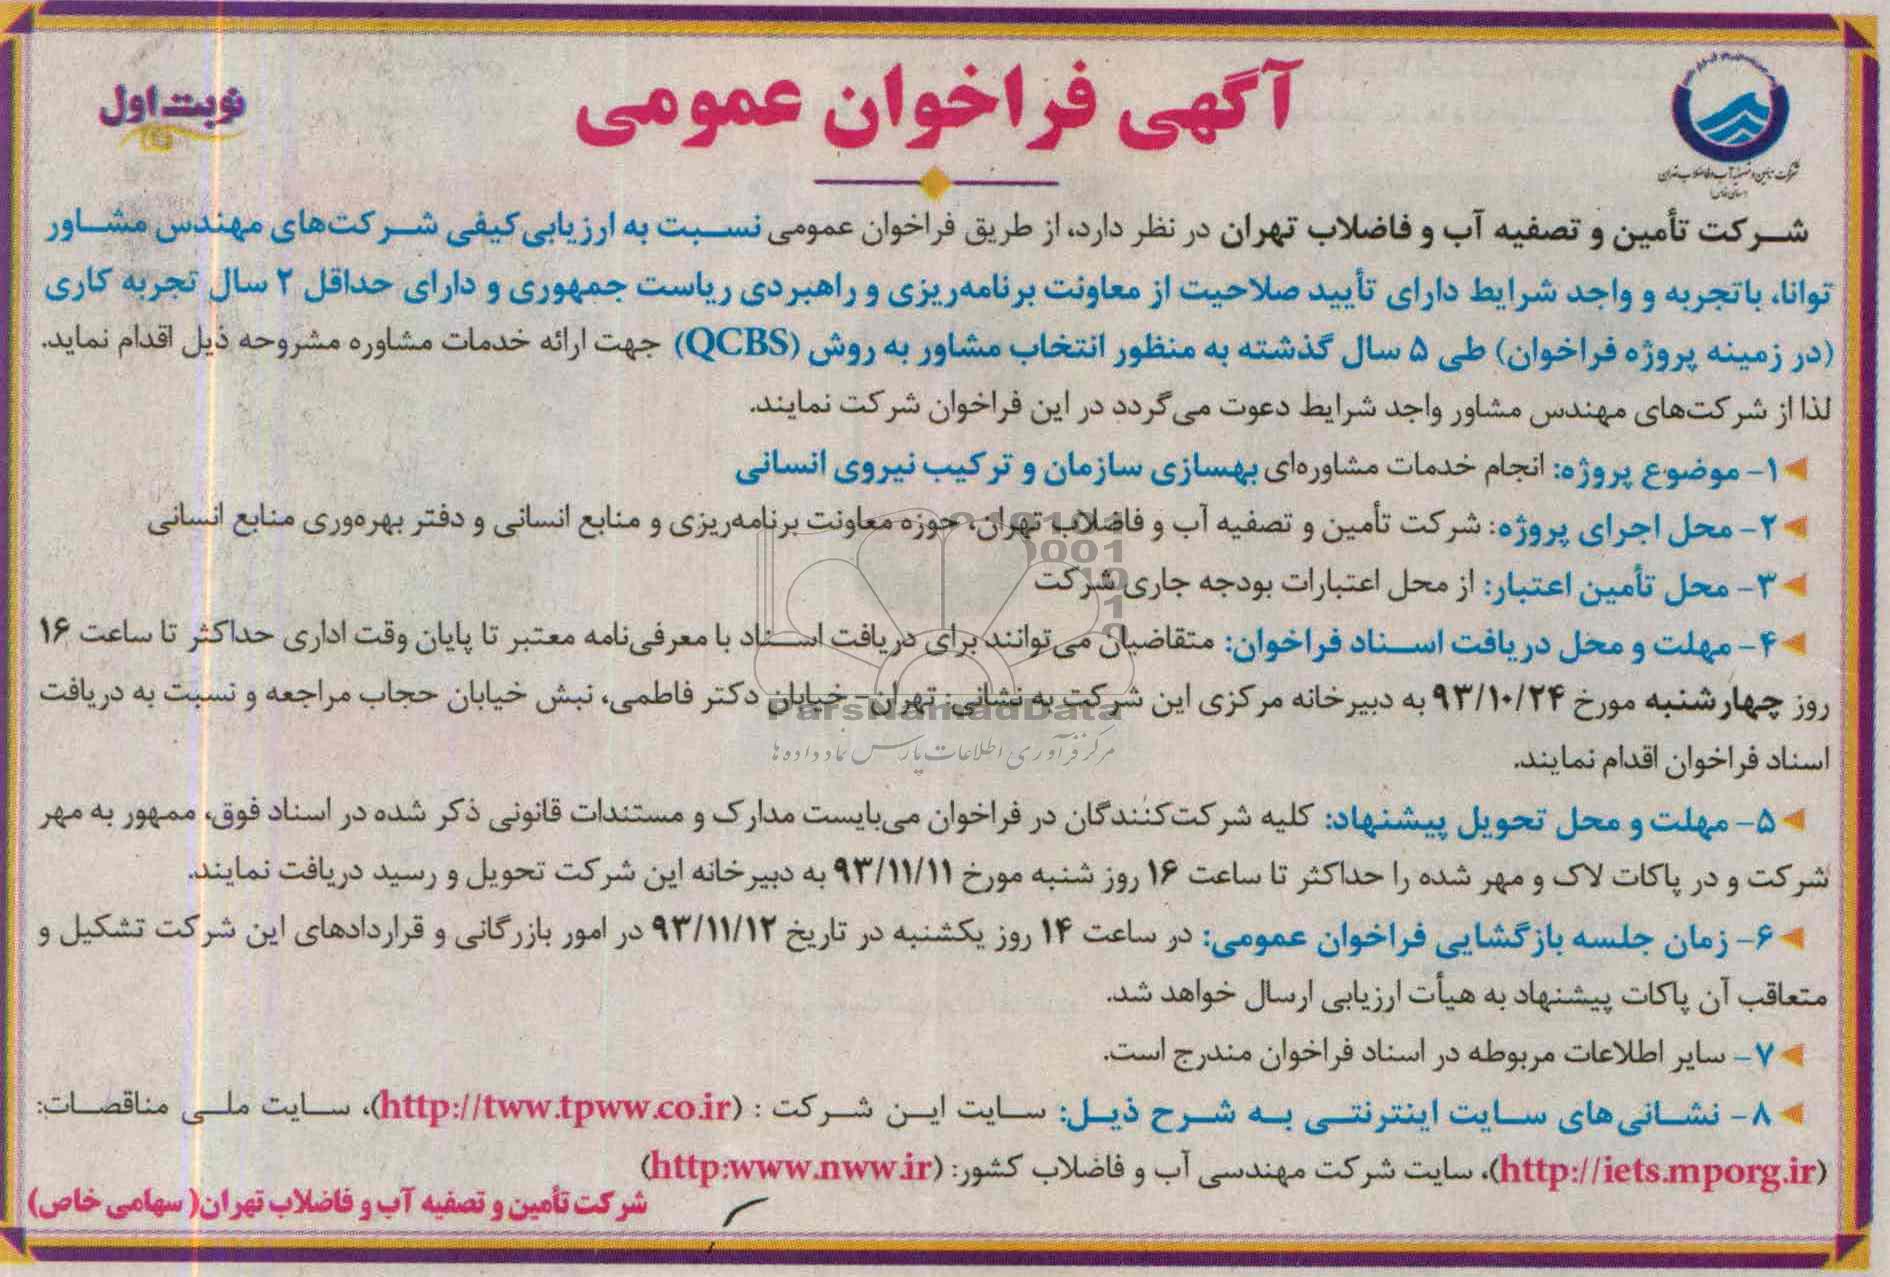 آگهی فراخوان عمومی
نوبت اول
شرکت تأمین و تصفیه آب و فاضلاب تهران
(سهامی خاص)
شرکت تأمین و تصفیه آب و فاضلاب تهران در نظر دارد، از طریق فراخوان عمومی نسبت به ارزیابی کیفی شرکت‌های مهندس مشاور
توانا، باتجربه و واجد شرایط دارای تأیید صلاحیت از معاونت برنامه‌ریزی و راهبردی ریاست جمهوری و دارای حداقل ۲ سال تجربه کاری
(در زمینه پروژه فراخوان) طی ۵ سال گذشته به منظور انتخاب مشاور به روش (QCBS) جهت ارائه خدمات مشاوره مشروحه ذیل اقدام نماید.
لذا از شرکت‌های مهندس مشاور واجد شرایط دعوت می‌گردد در این فراخوان شرکت نمایند.
۱- موضوع پروژه: انجام خدمات مشاوره‌ای بهسازی سازمان و ترکیب نیروی انسانی
۲- محل اجرای پروژه: شرکت تأمین و تصفیه آب و فاضلاب تهران، حوزه معاونت برنامه‌ریزی و منابع انسانی و دفتر بهره‌وری منابع انسانی
۳- محل تأمین اعتبار: از محل اعتبارات بودجه جاری شرکت
۴- مهلت و محل دریافت اسناد فراخوان: متقاضیان می‌توانند برای دریافت اسناد با معرفی‌نامه معتبر تا پایان وقت اداری حداکثر تا ساعت ۱۶
روز چهارشنبه مورخ ۹۳/۱۰/۲۴ به دبیرخانه مرکزی این شرکت به نشانی: تهران- خیابان دکتر فاطمی، نبش خیابان حجاب مراجعه و نسبت به دریافت
اسناد فراخوان اقدام نمایند.
۵- مهلت و محل تحویل پیشنهاد: کلیه شرکت‌کنندگان در فراخوان می‌بایست مدارک و مستندات قانونی ذکر شده در اسناد فوق، ممهور به مهر
شرکت و در پاکات لاک و مهر شده را حداکثر تا ساعت ۱۶ روز شنبه مورخ ۹۳/۱۱/۱۱ به دبیرخانه این شرکت تحویل و رسید دریافت نمایند.
۶- زمان جلسه بازگشایی فراخوان عمومی: در ساعت ۱۴ روز یکشنبه در تاریخ ۹۳/۱۱/۱۲ در امور بازرگانی و قراردادهای این شرکت تشکیل و
متعاقب آن پاکات پیشنهاد به هیأت ارزیابی ارسال خواهد شد.
۷- سایر اطلاعات مربوطه در اسناد فراخوان مندرج است.
۸- نشانی‌های سایت اینترنتی به شرح ذیل: سایت این شرکت : (http://tww.tpww.co.ir)، سایت ملی مناقصات:
(http://iets.mporg.ir)، سایت شرکت مهندسی آب و فاضلاب کشور: (http:www.nww.ir)
شرکت تأمین و تصفیه آب و فاضلاب تهران( سهامی خاص)
ParsNamadData
مرکز فرآوری اطلاعات پارس نماد داده‌ها